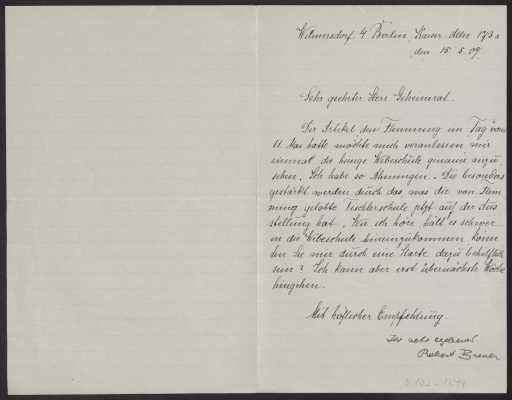 Wilmersdorf b Berlin, Kaiser allee 173 a
den 15. 5. 09.
Sehr geehrter Herr Geheimrat.
Der Artikel des Flemming im Tag vom
11. Mai hatte möchte mich veranlassen mir
einmal die hiesige Webeschule genau anzu
sehen. Ich habe so Ahnungen. Die besonders
gestärkt werden durch das, was die von Flem
ming gelobte Tischlerschule jetzt auf der Aus
stellung hat. Wie ich höre, hält es schwer
in die Webeschule hineinzukommen. Könn
ten Sie mir durch eine Karte dazu behülflich
sein? Ich kann aber erst übernächste Woche
hingehen.
Mit höflicher Empfehlung
Ihr sehr ergebener
Robert Breuer